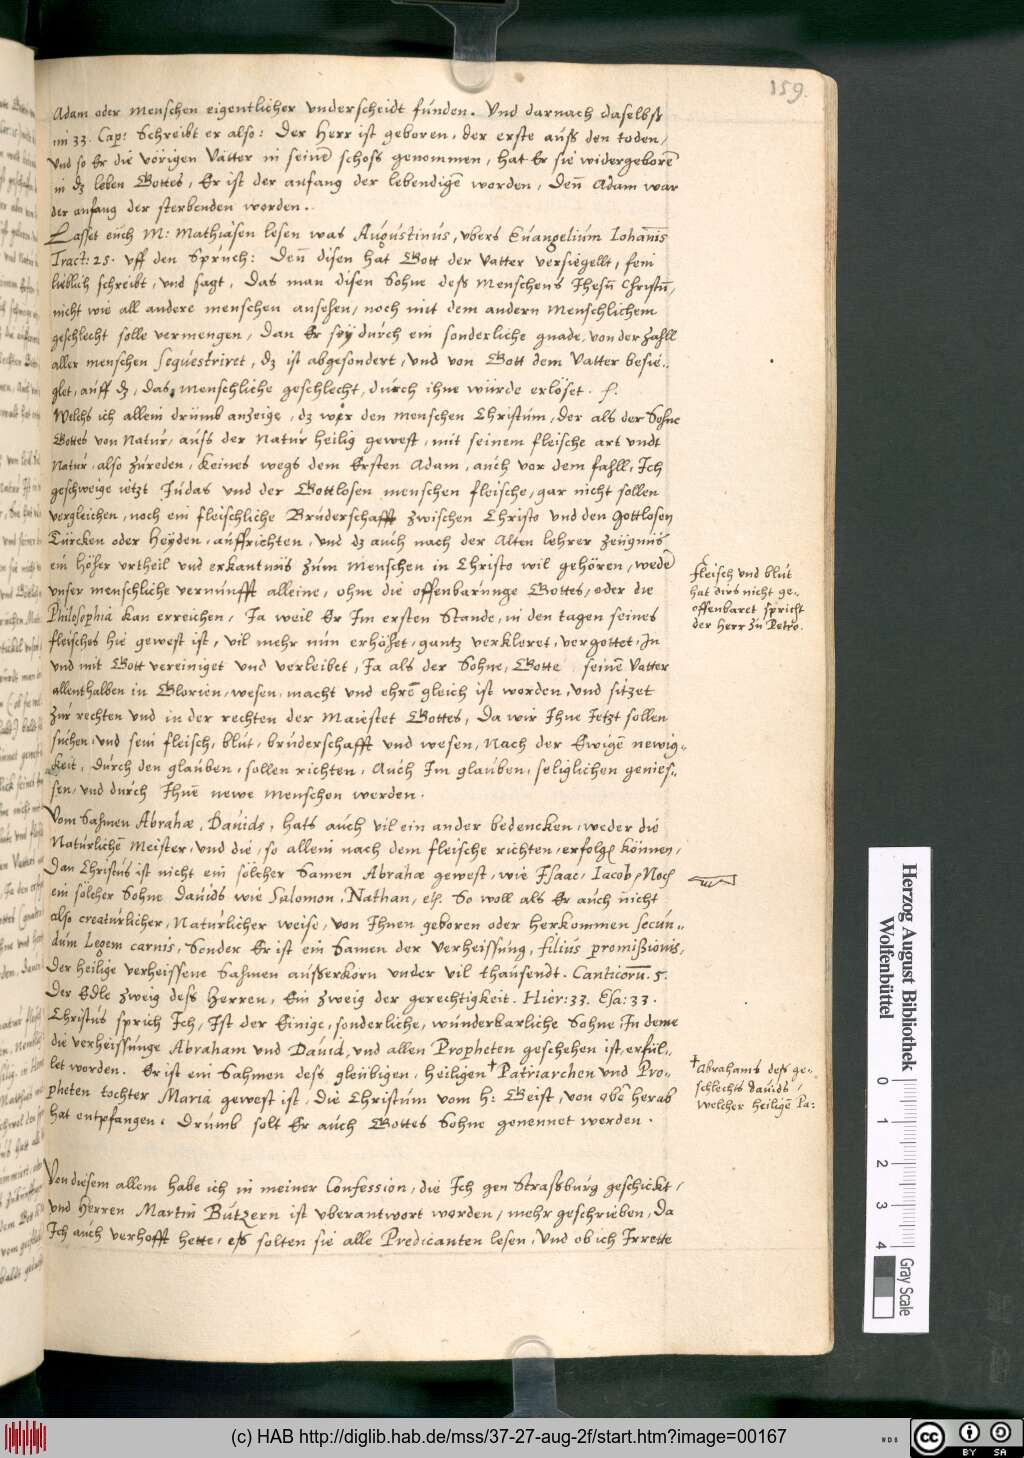 159.
Adam oder menschen eigentlicher vnderscheidt funden. Vnd darnach daselbst
im 33. Cap: Schreibt er also: Der Herr ist geboren, der erste auß den toden,
vnd so Er die vörigen Vätter in seinē schoß genommen, hat Er sie widergeborē
in dz leben Gottes, Er ist der anfang der lebendigē worden, Deñ Adam war
der anfang der sterbenden worden.
Lasset euch M: Mathiasen lesen was Augustinus, vbers Euangelium Iohanis
Tract: 25. vff den Spruch: Deñ disen hat Gott der Vatter versiegellt, fein
lieblich schreibt, vnd sagt, Das man disen Sohne deß Menschens Ihesū Christū,
nicht wie all andere menschen ansehen, noch mit dem andern Menschlichem
geschlecht solle vermengen, Dan Er sey durch ein sonderliche gnade, von der zahll
aller menschen sequestriret, dz ist abgesondert, vnd von Gott dem Vatter besie-
glet, auff dz, das menschliche geschlecht, durch ihne würde erlöset.
Welchs ich allein drümb anzeige, dz wir den menschen Christum, der als der Sohne
Gottes von Natur, auß der Natur heilig gewest, mit seinem fleische art vndt
Natur, also zureden, keines wegs dem Ersten Adam, auch vor dem fahll, Ich
geschweige ietzt Judas vnd der Gottlosen menschen fleische, gar nicht sollen
vergleichen, noch ein fleischliche Bruderschafft zwischen Christo vnd den Gottlosen
Türcken oder Heyden, auffrichten, vnd dz auch nach der Alten lehrer zeügnüs
ein höher vrtheil vnd erkantnüs zum Menschen in Christo wil gehören, wedē
vnser menschliche vernunfft alleine, ohne die offenbarunge Gottes, oder die
Philosophia kan erreichen, Ja weil Er Im ersten Stande, in den tagen seines
fleisches hie gewest ist, vil mehr nun erhöhet, gantz verkleret, vergottet, In
vnd mit Gott vereiniget vnd verleibet, Ja als der Sohne, Gotte seinē Vatter
allenthalben in Glorien, wesen, macht vnd ehrē gleich ist worden, vnd sitzet
zur rechten vnd in der rechten der Maiestet Gottes, Da wir Ihne Jetzt sollen
suchen, vnd sein fleisch, blut, bruderschafft vnd wesen, Nach der Ewigē newig-
keit, durch den glauben, sollen richten, Auch Im glauben, seliglichen genies-
sen, vnd durch Ihnē newe Menschen werden.
Vom Sahmen Abrahæ, Dauids, hats auch vil ein ander bedencken, weder die
Natürlichē Meister, vnd die, so allein nach dem fleische richten, erfolgē können,
Dan Christus ist nicht ein sölcher Samen Abrahæ gewest, wie Isaac, Iacob, Noch
ein sölcher Sohne Dauids wie Salomon, Nathan, etc. So woll als Er auch nicht
also creatürlicher, Natürlicher weise, von Ihnen geboren oder herkommen secun-
dum Legem carnis, Sonder Er ist ein Samen der Verheissung, filius promißionis,
Der heilige verheissene Sahmen außerkorn vnder vil thausendt. Canticorū. 5.
Der Edle zweig deß Herren, Ein zweig der gerechtigkeit. Hier: 33. Esa: 33.
Christus sprich Ich, Ist der Einige, sonderliche, wunderbarliche Sohne, In deme
die verheissunge Abraham vnd Dauid, vnd allen Propheten geschehen ist, erfül-
let worden. Er ist ein Sahmen deß gleübigen, heiligen † Patriarchen vnd Pro-
pheten tochter Maria gewest ist, Die Christum vom h: Geist, von obē herab
hat entpfangen. Drumb solt Er auch Gottes Sohne genennet werden.
Von diesem allem habe ich in meiner Confession, die Ich gen Straßburg geschickt,
vnd Herren Martin Butzern ist vberantwort worden, mehr geschrieben, Da
Ich auch verhofft hette, eß solten sie alle Predicanten lesen, Vnd ob ich Irrette
fleisch vnd blut
hat dirs nicht ge-
offenbaret spricht
der Herr zu Petro.
† Abrahams deß ge-
schlechts dauids,
welcher heiligē Pa:
Herzog August Bibliothek
Wolfenbüttel
0 1 2 3 4
Gray Scale
(c) HAB http://diglib.hab.de/mss/37-27-aug-2f/start.htm?image=00167
WDB
cc BY SA